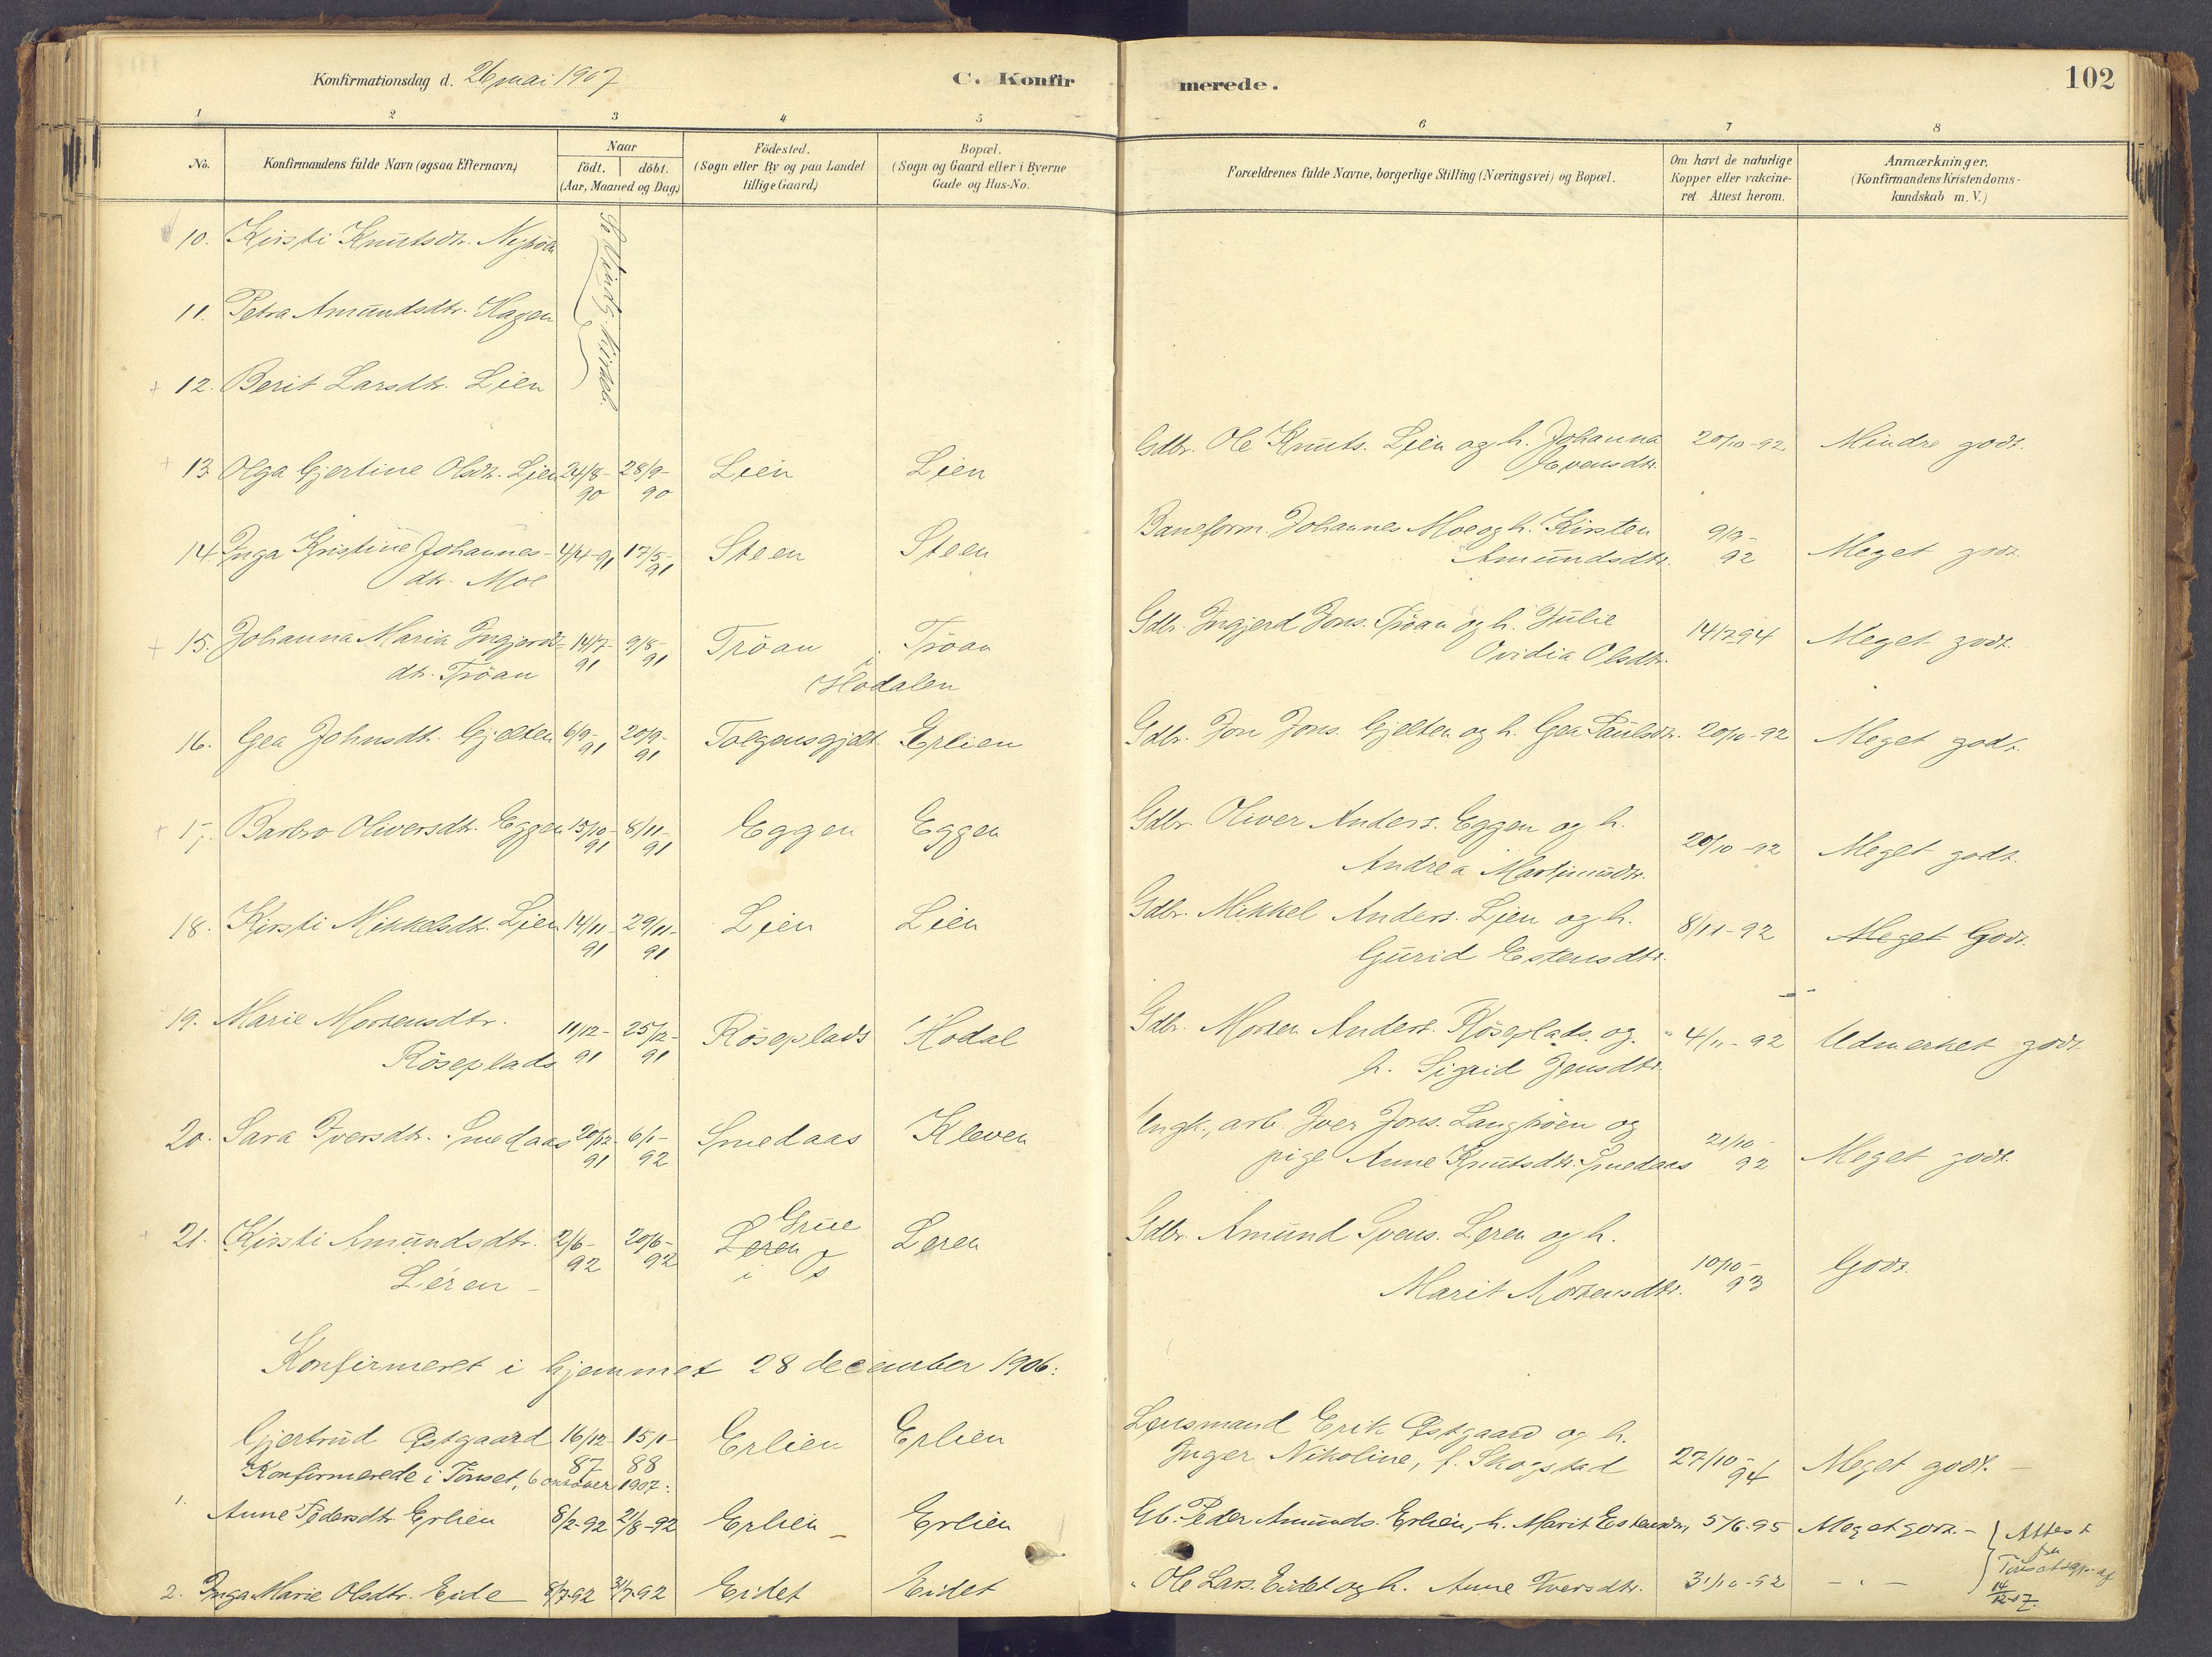 Konfirmationsdag d. 26 mai 1907
C. Konfir
merede.
102
1 2 3 4 5 6 7 8
No.
Konfirmandens fulde Navn (ogsaa Efternavn)
Naar
födt. döbt.
(Aar, Maaned og Dag.)
Födested.
(Sogn eller By og paa Landet
tillige Gaard)
Bopæl.
(Sogn og Gaard eller i Byerne
Gade og Hus-No.
Forældrenes fulde Navne, borgerlige Stilling (Næringsvei) og Bopæl.
Om havt de naturlige
Kopper eller vakcine-
ret. Attest herom.
Anmærkninger.
(Konfirmandens Kristendoms-
kundskab m.V.)
10. Kirsti Knutsdtr.
11. Petra Amundsdtr. Hagen
12. Berit Larsdtr. Lien
13. Olga Gjertine Olsdtr. Lien 24/8-90 28/9-90 Lien Lien Gdbr. Ole Knuts. Lien og h. Johanna 20/10-92 Mindre godt.
Evensdtr.
14. Inga Kristine Johannes- 4/4-91 17/5-91 Steen Steen Baneform. Johannes Moe og h. Kirsten 92 Meget godt.
dtr. Moe Amundsdtr.
15. Johanna Maria Ingjerds- 14/7-91 9/8-91 Tröan Tröan Gdbr. Ingjerd Jons. Tröan og h. Julie Meget godt.
dtr. Tröan i Hodalen Ovidia Olsdtr.
16. Gea Johnsdtr. Gjelten 6/9-91 20/9-91 Tolgensgjelt. Erlien Gdbr. Jon Jons. Gjelten og h. Gea Paulsdtr. 20/10-92 Meget godt.
17. Barbro Oliversdtr. Eggen 15/10-91 8/11-91 Eggen Eggen Gdbr. Oliver Anders. Eggen og h. 20/10-92 Meget godt.
Andrea Martinusdtr.
18. Kirsti Mikkelsdtr. Lien 14/11-91 29/11-91 Lien Lien Gdbr. Mikkel Anders. Lien og h. 8/11-92 Meget Godt.
Gurid Estensdtr.
19. Marie Mortensdtr. 11/12-91 25/12-91 Röseplads Hodal Gdbr. Morten Anders. Röseplads. og 4/11-92 Udmerket godt
Röseplads h. Sigrid Jensdtr.
20. Sara Iversdtr. Smedaas 20/12-91 6/1-92 Smedaas Kleven Ungk., arb. Iver Jons. Langböen og 21/10-92 Meget godt.
pige Anne Knutsdtr. Smedaas
21. Kirsti Amundsdtr. 2/6-92 20/6-92 Leren Grue Leren Gdbr. Amund Svens. Leren og h. 10/10-93 Godt.
Léren i Marit Mortensdtr.
Konfirmeret i hjemmet 28 december 1906:
Gjertrud Østgaard 16/12-87 15/1-88 Erlien Erlien Lensmand Erik Østgaard og h.
Inger Nikoline, f. Skogstad 27/10-94 Meget godt.
Konfirmerede i Tönset, 6 october 1907:
1. Anne Pedersdtr Erlien 8/2-92 21/8-92 Erlien Erlien Gb. Peder Amunds. Erlien, h. Marit Estensdtr, 5/6-95 Meget godt. - Attest
fra
2. Inga Marie Olsdtr. Eide 8/7-92 31/7-92 Eidet Eidet " Ole Lars. Eidet og h. Anne Iversdtr. 31/10-92 - " - Tönset af
14/12-07.